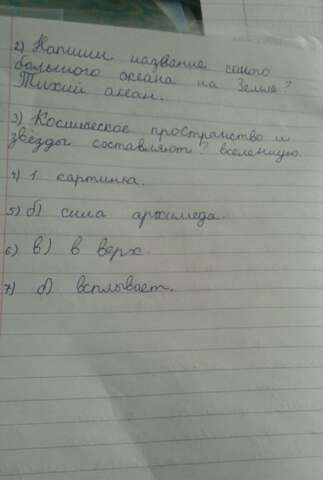 2) Напиши название самого
большого океана на Земле?
Тихий океан.
3) Космическое пространство и
звёзды составляют? вселенную.
4) 1 картинка.
5) б) сила архимеда.
6) в) в верх.
7) б) всплывает.